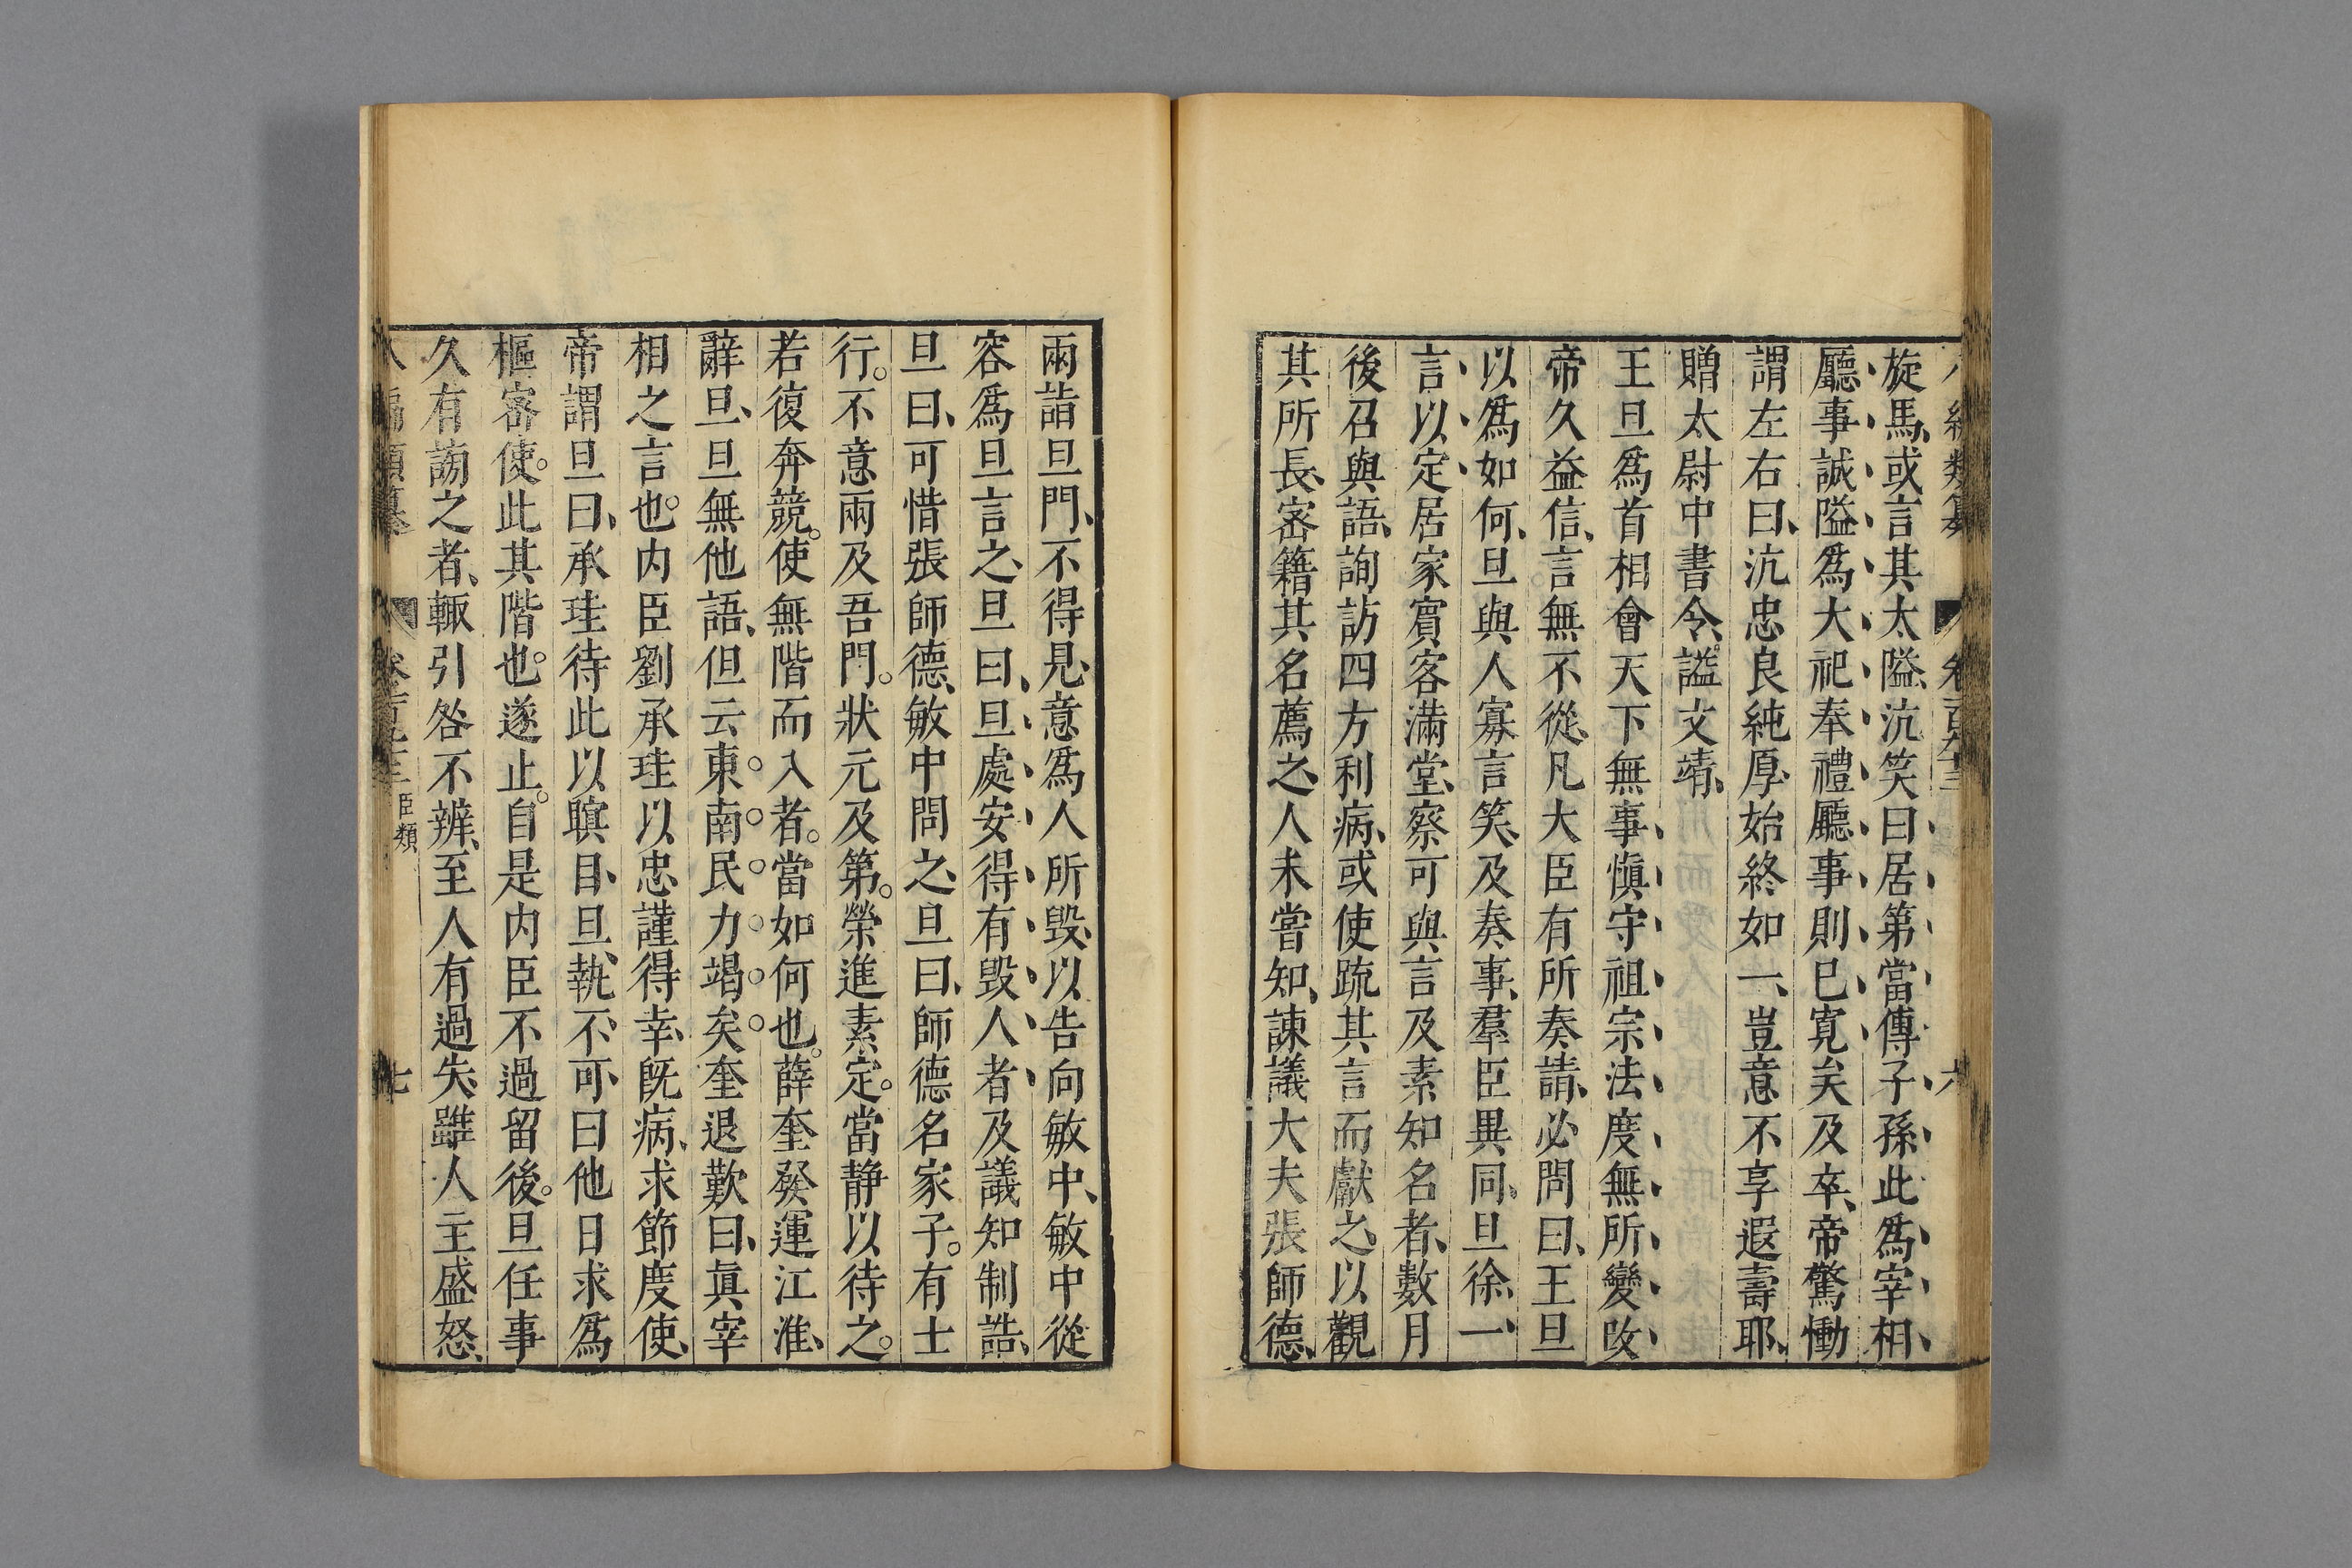 旋馬、或言其太隘、沆笑曰居第當傳子孫此爲宰相
廳事誠隘爲大祀奉禮廳事則已寬矣及卒、帝驚慟
謂左右曰、沆忠良純厚、始終如一、豈意不享遐壽耶、
贈太尉中書令、謚文靖、
王旦爲首相會天下無事愼守祖宗法度無所變改
帝久益信、言無不從、凡大臣有所奏請、必問曰、王旦
以爲如何、旦與人寡言笑、及奏事、羣臣異同、旦徐一
言以定居家賓客滿堂、察可與言及素知名者、數月
後召與語、詢訪四方利病、或使䟽其言而獻之、以觀
其所長、宻籍其名薦之、人未嘗知、諫議大夫張師德、
兩詣旦門、不得見、意爲人所毀、以告向敏中、敏中從
容爲旦言之、旦曰、旦處安得有毀人者及議知制誥、
旦曰、可惜張師德、敏中問之、旦曰、師德名家子。有士
行。不意兩及吾門。狀元及第。榮進素定。當静以待之。
若復奔競。使無階而入者。當如何也。薛奎發運江淮、
辭旦、旦無他語、但云東南民力竭矣奎退歎曰、眞宰
相之言也。内臣劉承珪以忠謹得幸、旣病、求節度使、
帝謂旦曰、承珪待此以瞑目、旦、執不可、曰他日求爲
樞宻使。此其階也。遂止。自是内臣不過留後。旦任事
久有謗之者、輙引咎不辨、至人有過失、雖人主盛怒、
編類纂 卷 臣類 七